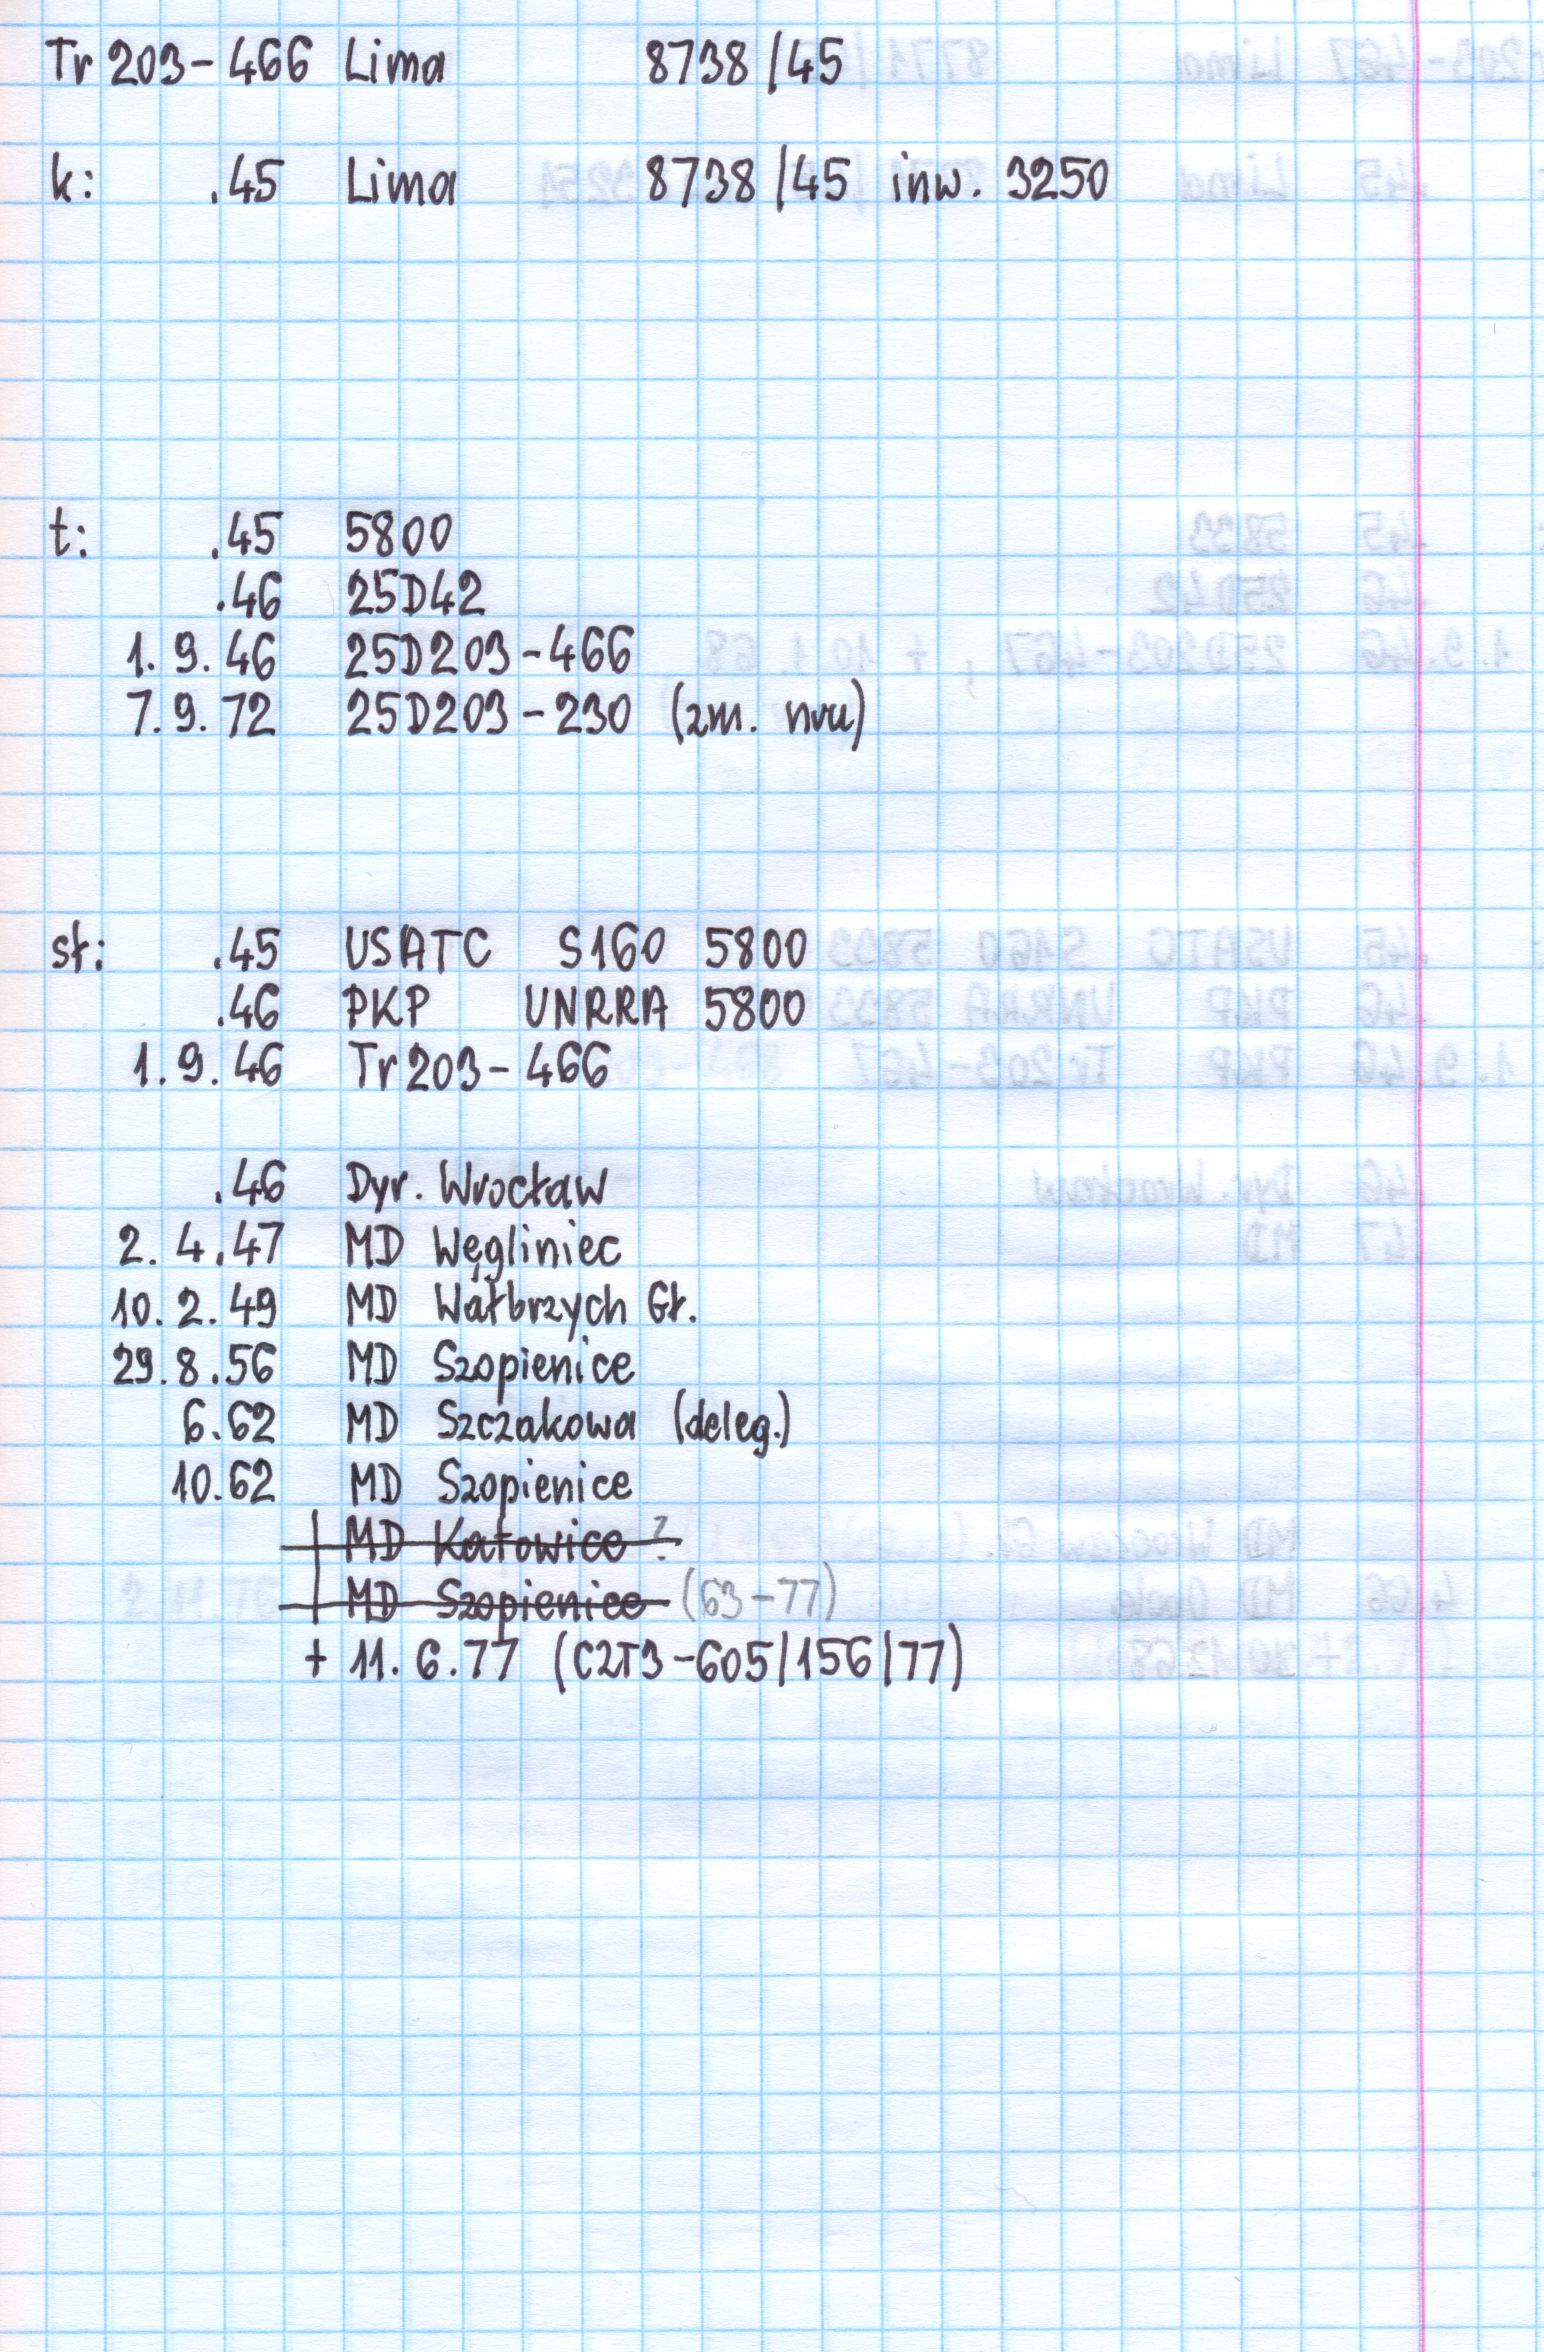 Tr 203-466 Lima 8738/45
k: .45 Lima 8738/45 inw. 3250
t: .45 5800
.46 25D42
1.9.46 25D203-466
7.9.72 25D203-230 (zm. nru)
st: .45 USATC S160 5800
.46 PKP UNRRA 5800
1.9.46 Tr203-466
.46 Dyr. Wrocław
2.4.47 MD Węgliniec
10.2.49 MD Wałbrzych Gł.
29.8.56 MD Szopienice
6.62 MD Szczakowa (deleg.)
10.62 MD Szopienice
MD Katowice ?
MD Szopienice (63-77)
+ 11.6.77 (C2T3-605/156/77)